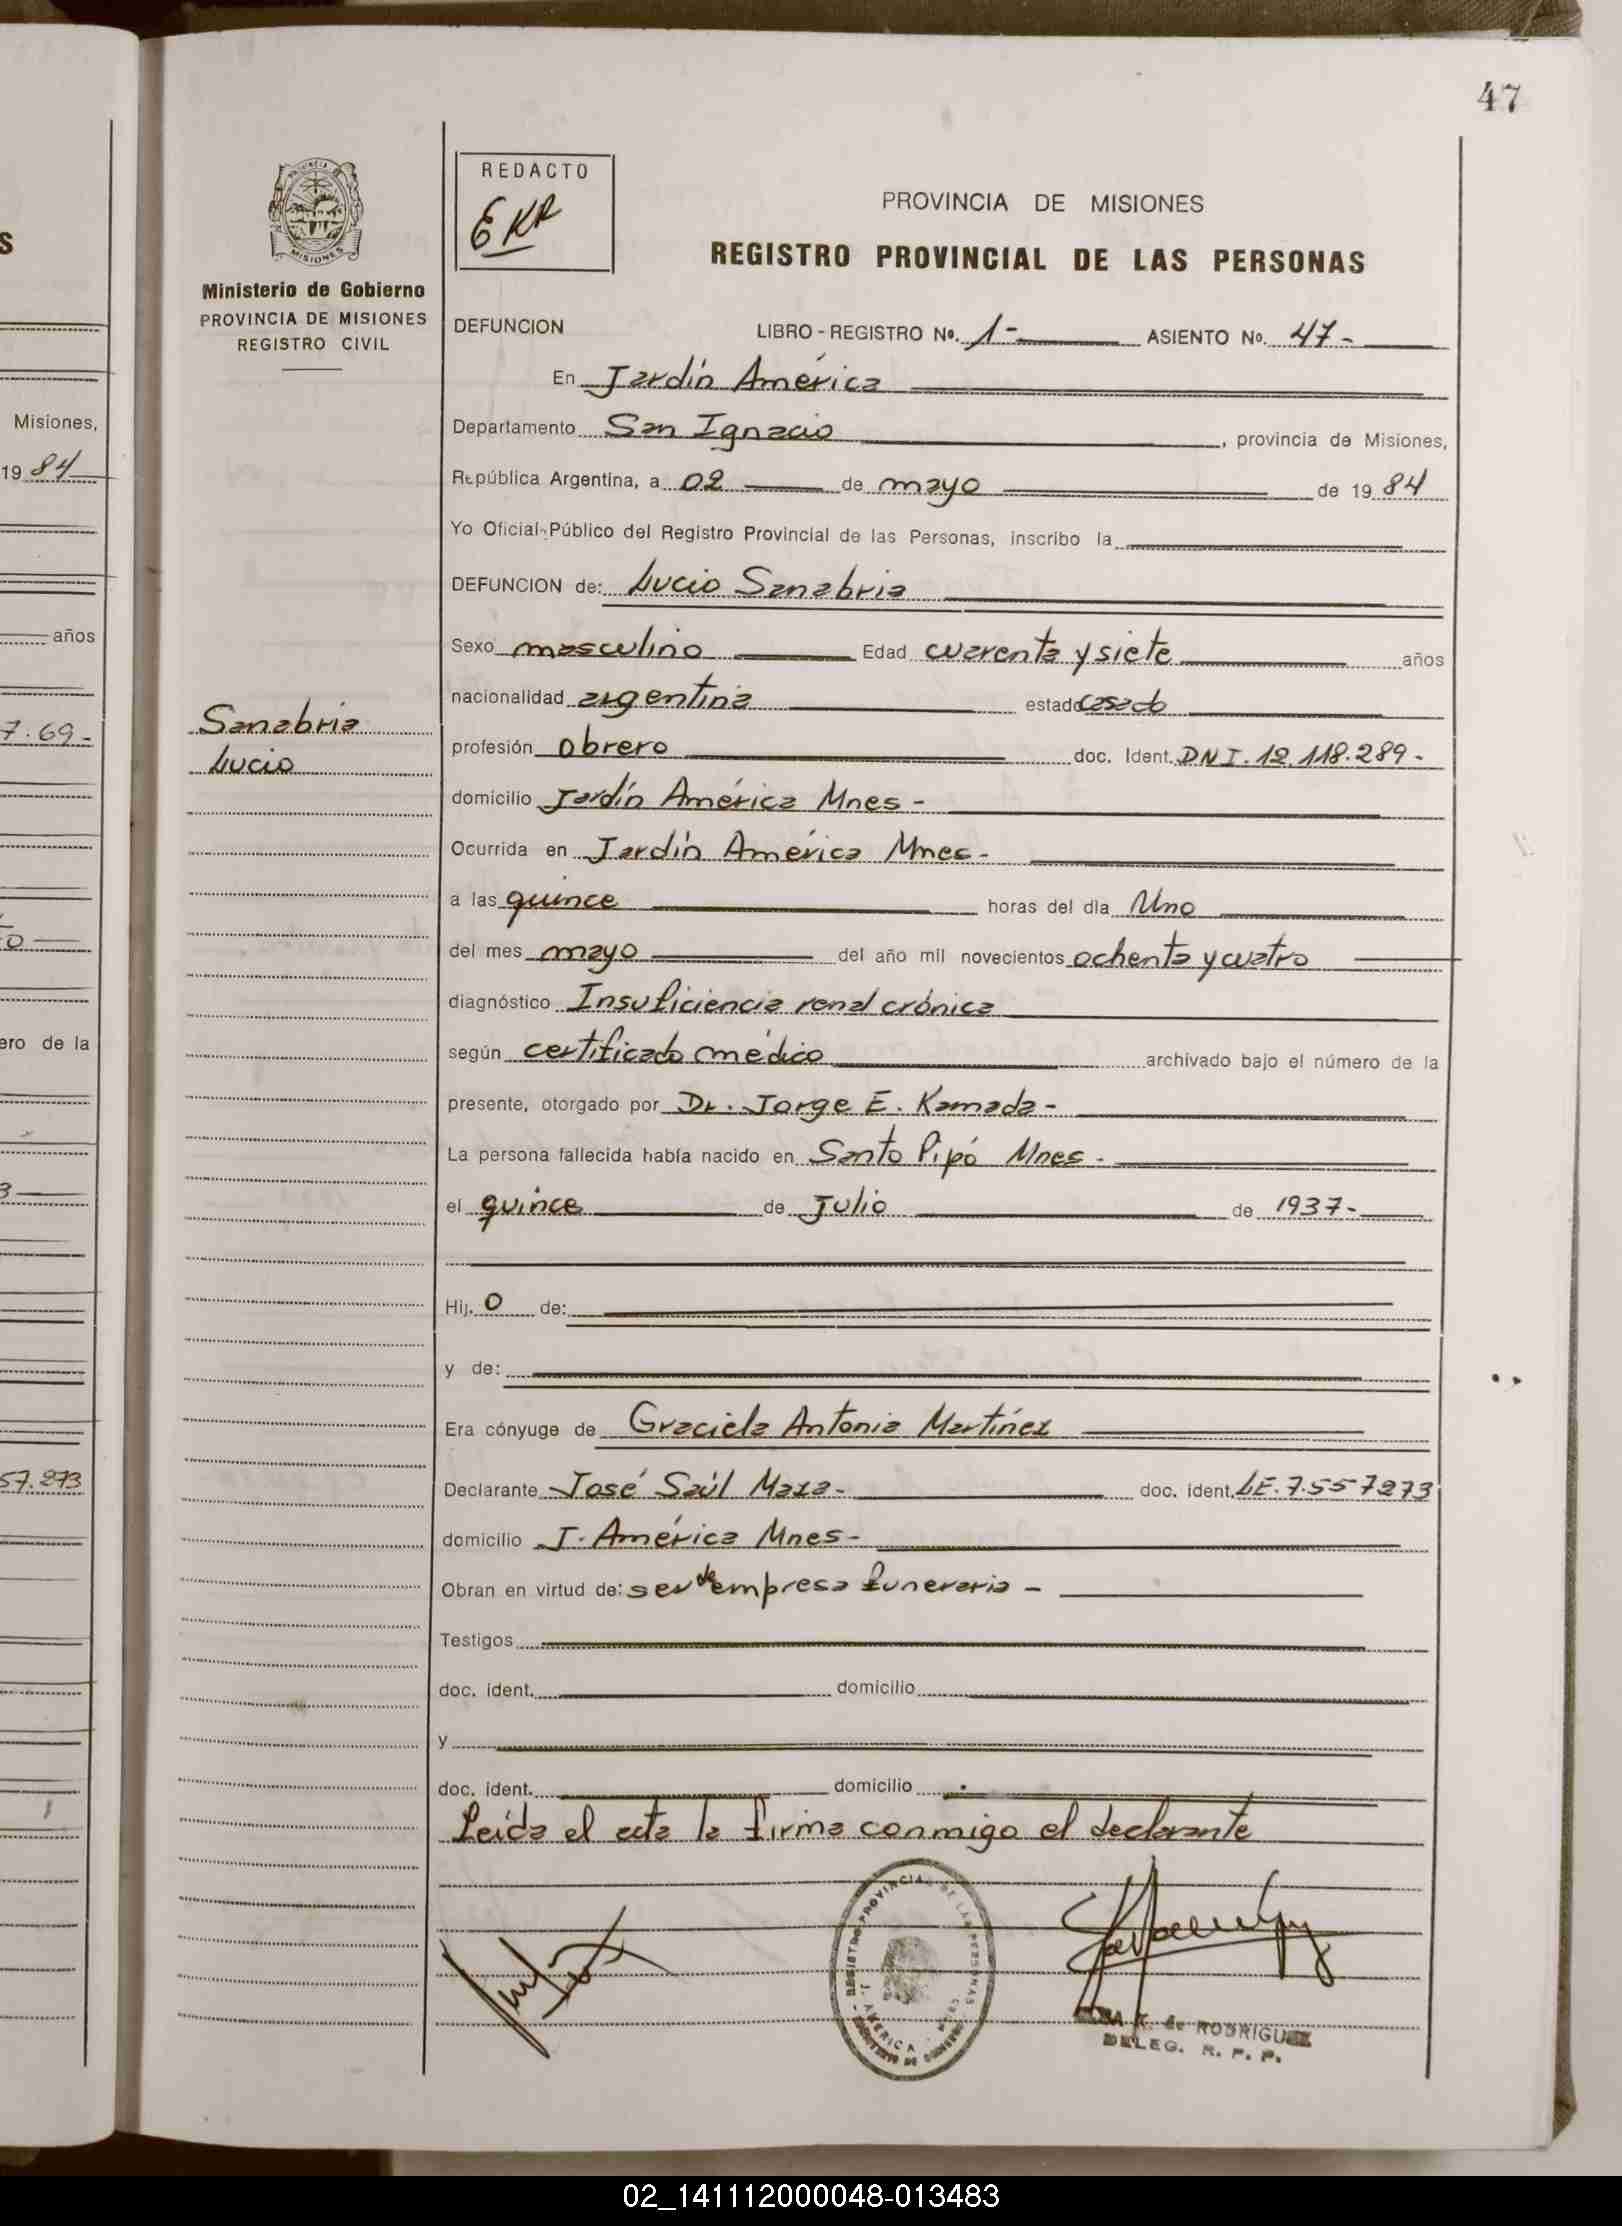 47
PROVINCIA DE MISIONES
Ministerio de Gobierno
PROVINCIA DE MISIONES
REGISTRO CIVIL
Sanabria
Lucio
REDACTO
EKR
PROVINCIA DE MISIONES
REGISTRO PROVINCIAL DE LAS PERSONAS
DEFUNCION LIBRO - REGISTRO Nº. 1- ASIENTO Nº. 47-
En Jardín América
Departamento San Ignacio, provincia de Misiones,
República Argentina, a 02 de mayo de 1984
Yo Oficial Público del Registro Provincial de las Personas, inscribo la
DEFUNCION de: Lucio Sanabria
Sexo masculino Edad cuarenta y siete años
nacionalidad argentina estado casado
profesión obrero doc. Ident. DNI. 12.118.289-
domicilio Jardín América Mnes-
Ocurrida en Jardín América Mnes-
a las quince horas del día Uno
del mes mayo del año mil novecientos ochenta y cuatro
diagnóstico Insuficiencia renal crónica
según certificado médico archivado bajo el número de la
presente, otorgado por Dr. Jorge E. Kamada-
La persona fallecida había nacido en Santo Pipó Mnes-
el quince de Julio de 1937-
Hij. o de:
y de:
Era cónyuge de Graciela Antonia Martínez
Declarante José Saúl Maza- doc. ident. LE. 7.557273
domicilio J. América Mnes-
Obran en virtud de: ser de empresa funeraria -
Testigos
doc. ident. domicilio
y
doc. ident. domicilio
Leída el acta la firma conmigo el declarante
REGISTRO PROVINCIAL DE LAS PERSONAS
J. AMERICA
K. de RODRIGUEZ
DELEG. R. P. P.
S
Misiones,
1984
años
7.69-
ero de la
57.273
02_141112000048-013483